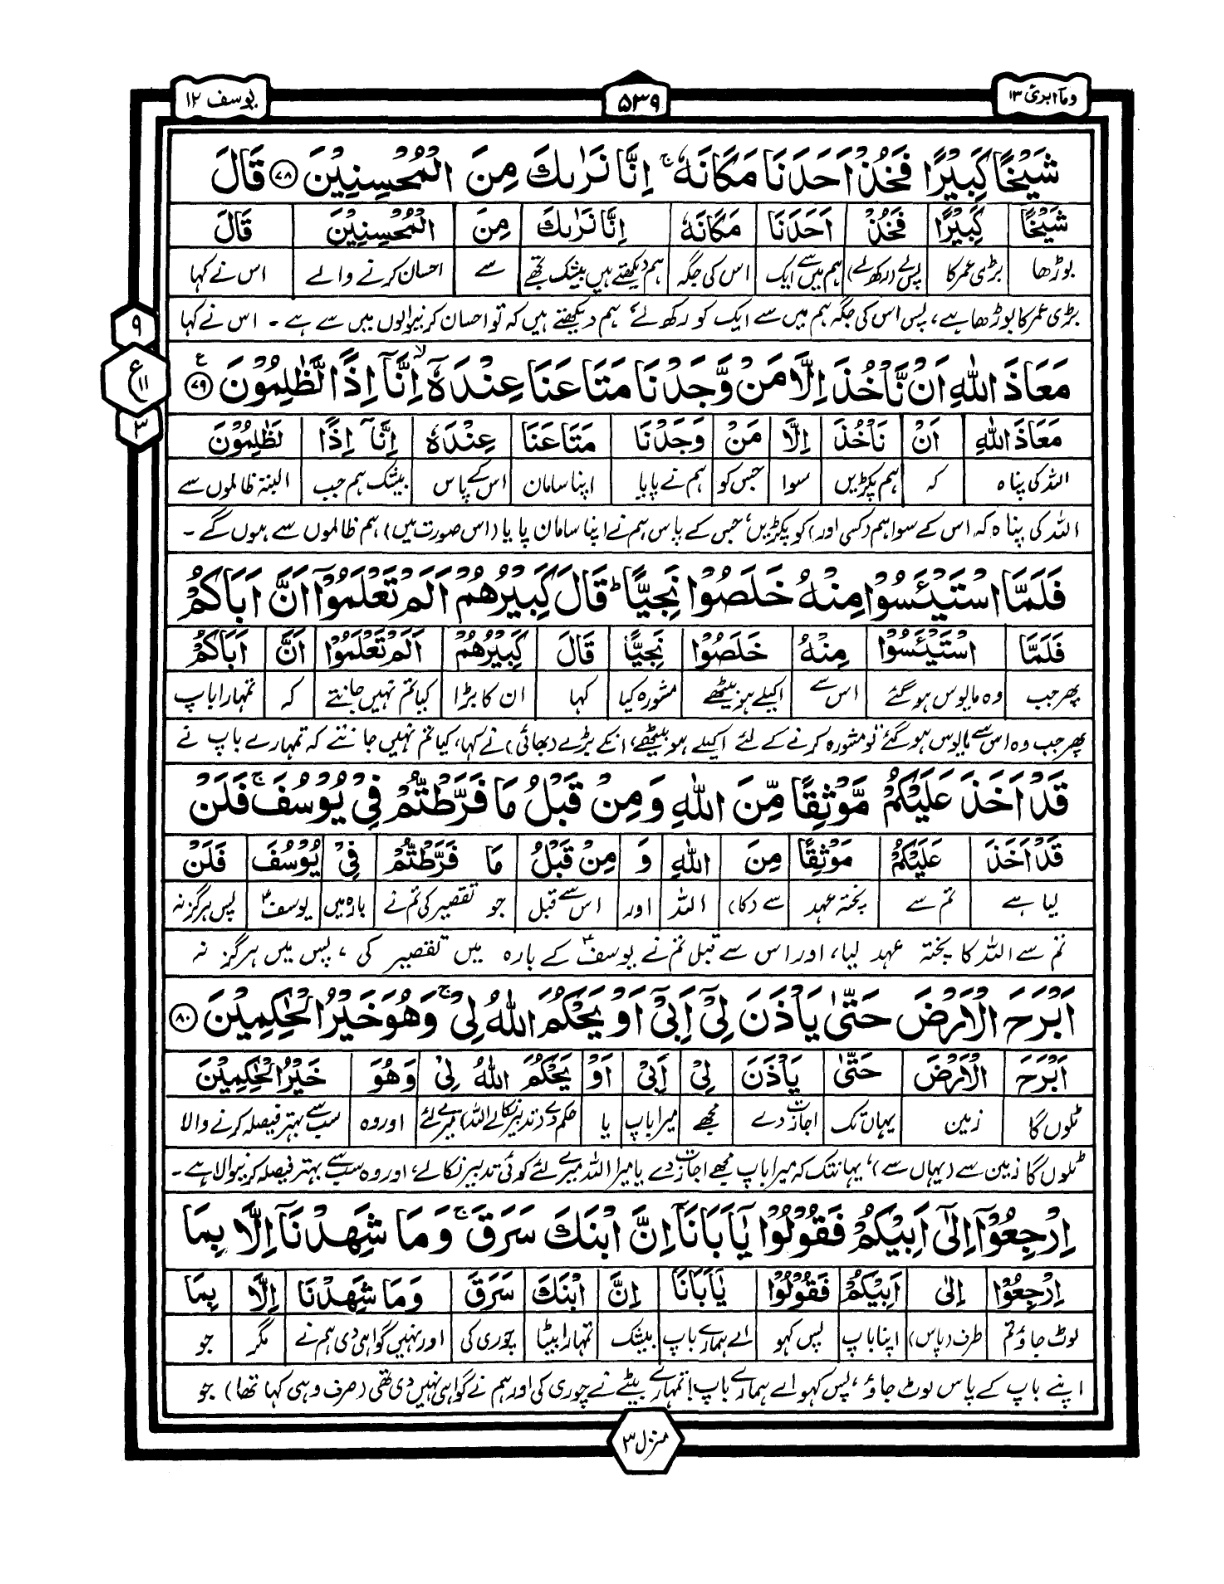 وما ابرئ ۱۳
۵۳۹
یوسف ۱۲
شَيْخًا كَبِيْرًا فَخُذْ اَحَدَنَا مَكَانَهٗ ۚ اِنَّا نَرٰىكَ مِنَ الْمُحْسِنِيْنَ ۷۸ قَالَ
شَيْخًا كَبِيْرًا فَخُذْ اَحَدَنَا مَكَانَهٗ اِنَّا نَرٰىكَ مِنَ الْمُحْسِنِيْنَ قَالَ
بوڑھا بڑی عمر کا پس لے (رکھ لے) ہم میں سے ایک اس کی جگہ ہم دیکھتے ہیں بیشک تجھے سے احسان کرنے والے اس نے کہا
بڑی عمر کا بوڑھا ہے، پس اس کی جگہ ہم میں سے ایک کو رکھ لے، ہم دیکھتے ہیں کہ تو احسان کرنیوالوں میں سے ہے ۔ اس نے کہا
۹
ع ۱۱
۳
مَعَاذَ اللّٰهِ اَنْ نَّاْخُذَ اِلَّا مَنْ وَّجَدْنَا مَتَاعَنَا عِنْدَهٗٓ ۙ اِنَّآ اِذًا لَّظٰلِمُوْنَ ۷۹ ع
مَعَاذَ اللّٰهِ اَنْ نَاْخُذَ اِلَّا مَنْ وَجَدْنَا مَتَاعَنَا عِنْدَهٗ اِنَّآ اِذًا لَظٰلِمُوْنَ
اللہ کی پناہ کہ ہم پکڑیں سوا جس کو ہم نے پایا اپنا سامان اس کے پاس بیشک ہم جب البتہ ظالموں سے
اللہ کی پناہ کہ اس کے سوا ہم (کسی اور) کو پکڑیں، جس کے پاس ہم نے اپنا سامان پایا (اس صورت میں) ہم ظالموں سے ہوں گے ۔
فَلَمَّا اسْتَيْئَسُوْا مِنْهُ خَلَصُوْا نَجِيًّا ؕ قَالَ كَبِيْرُهُمْ اَلَمْ تَعْلَمُوْٓا اَنَّ اَبَاكُمْ
فَلَمَّا اسْتَيْئَسُوْا مِنْهُ خَلَصُوْا نَجِيًّا قَالَ كَبِيْرُهُمْ اَلَمْ تَعْلَمُوْٓا اَنَّ اَبَاكُمْ
پھر جب وہ مایوس ہوگئے اس سے اکیلے ہو بیٹھے مشورہ کیا کہا ان کا بڑا کیا تم نہیں جانتے کہ تمہارا باپ
پھر جب وہ اس سے مایوس ہوگئے تو مشورہ کرنے کے لئے اکیلے ہو بیٹھے، انکے بڑے (بھائی) نے کہا، کیا تم نہیں جانتے کہ تمہارے باپ نے
قَدْ اَخَذَ عَلَيْكُمْ مَّوْثِقًا مِّنَ اللّٰهِ وَمِنْ قَبْلُ مَا فَرَّطْتُّمْ فِيْ يُوْسُفَ ۚ فَلَنْ
قَدْ اَخَذَ عَلَيْكُمْ مَوْثِقًا مِنَ اللّٰهِ وَ مِنْ قَبْلُ مَا فَرَّطْتُّمْ فِيْ يُوْسُفَ فَلَنْ
لیا ہے تم سے پختہ عہد سے (کا) اللہ اور اس سے قبل جو تقصیر کی تم نے بارہ میں یوسفؑ پس ہرگز نہ
تم سے اللہ کا پختہ عہد لیا، اور اس سے قبل تم نے یوسفؑ کے بارہ میں تقصیر کی ، پس میں ہرگز نہ
اَبْرَحَ الْاَرْضَ حَتّٰى يَاْذَنَ لِيْٓ اَبِيْٓ اَوْ يَحْكُمَ اللّٰهُ لِيْ ۚ وَهُوَ خَيْرُ الْحٰكِمِيْنَ ۸۰
اَبْرَحَ الْاَرْضَ حَتّٰى يَاْذَنَ لِيْٓ اَبِيْٓ اَوْ يَحْكُمَ اللّٰهُ لِيْ وَهُوَ خَيْرُ الْحٰكِمِيْنَ
ٹلوں گا زمین یہاں تک اجازت دے مجھے میرا باپ یا حکم دے (تدبیر نکالے اللہ) میرے لئے اور وہ سب سے بہتر فیصلہ کرنے والا
ٹلوں گا زمین سے (یہاں سے)، یہانتک کہ میرا باپ مجھے اجازت دے یا میرا اللہ میرے لئے کوئی تدبیر نکالے، اور وہ سب سے بہتر فیصلہ کرنیوالا ہے ۔
اِرْجِعُوْٓا اِلٰٓى اَبِيْكُمْ فَقُوْلُوْا يٰٓاَبَانَآ اِنَّ ابْنَكَ سَرَقَ ۚ وَمَا شَهِدْنَآ اِلَّا بِمَا
اِرْجِعُوْٓا اِلٰى اَبِيْكُمْ فَقُوْلُوْا يٰٓاَبَانَآ اِنَّ ابْنَكَ سَرَقَ وَمَا شَهِدْنَا اِلَّا بِمَا
لوٹ جاؤ تم طرف (پاس) اپنا باپ پس کہو اے ہمارے باپ بیشک تمہارا بیٹا چوری کی اور نہیں گواہی دی ہم نے مگر جو
اپنے باپ کے پاس لوٹ جاؤ، پس کہو اے ہمارے باپ! تمہارے بیٹے نے چوری کی اور ہم نے گواہی نہیں دی تھی (صرف وہی کہا تھا) جو
منزل ۳